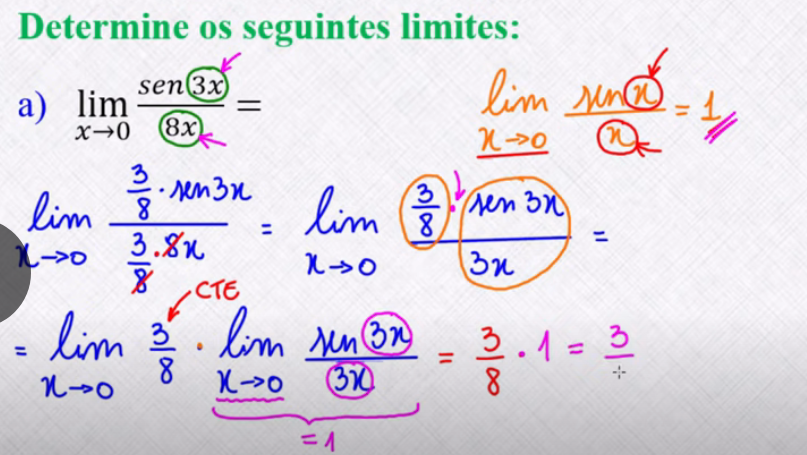 Determine os seguintes limites:
a) lim x→0 sen 3x / 8x =
lim x→0 sen x / x = 1
lim x→0 (3/8 · sen 3x) / (3/8 · 8x) = lim x→0 3/8 · sen 3x / 3x =
CTE
= lim x→0 3/8 · lim x→0 sen 3x / 3x = 3/8 · 1 = 3/
= 1